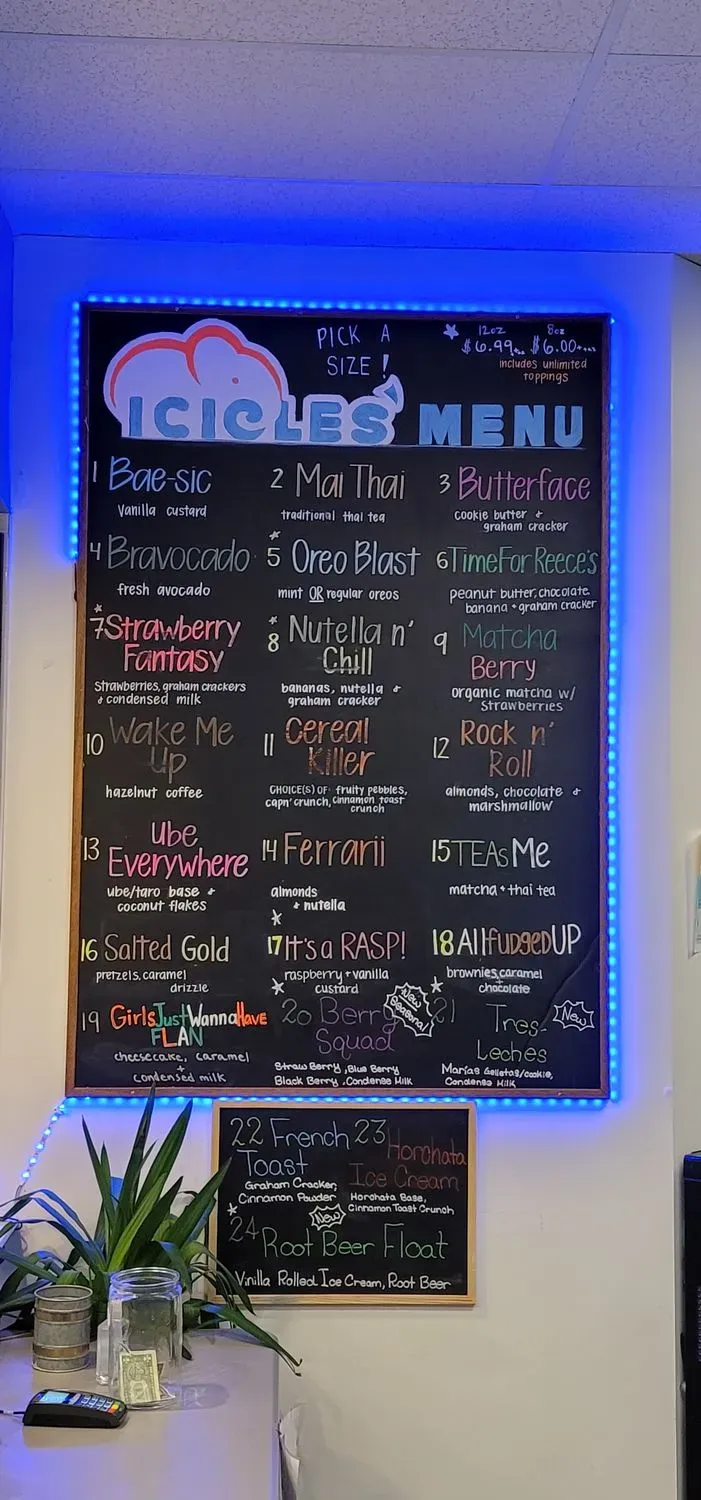 PICK A
SIZE!
12oz 8oz
$6.99 $6.00
includes unlimited
toppings
ICICLES' MENU
1 Bae-sic
Vanilla custard
2 Mai Thai
traditional thai tea
3 Butterface
cookie butter +
graham cracker
4 Bravocado
fresh avocado
5 Oreo Blast
mint OR regular oreos
6 TimeForReece's
peanut butter, chocolate
banana + graham cracker
7 Strawberry
Fantasy
Strawberries, graham crackers
+ condensed milk
8 Nutella n'
Chill
bananas, nutella +
graham cracker
9 Matcha
Berry
organic matcha w/
Strawberries
10 Wake Me
Up
hazelnut coffee
11 Cereal
Killer
CHOICE(S) OF: fruity pebbles,
capn' crunch, cinnamon toast
crunch
12 Rock n'
Roll
almonds, chocolate +
marshmallow
13 Ube
Everywhere
ube/taro base +
coconut flakes
14 Ferrarii
almonds
+ nutella
15 TEAs Me
matcha + thai tea
16 Salted Gold
pretzels, caramel
drizzle
17 It's a RASP!
raspberry + vanilla
custard
18 All fudged UP
brownies, caramel
chocolate
19 GirlsJustWannaHAVE
FLAN
cheesecake, caramel
+
condensed milk
20 Berry
Squad
New
Seasonal
Straw Berry, Blue Berry
Black Berry, Condense Milk
21 Tres-
Leches
New
Marías Galletas/cookie,
Condense Milk
22 French
Toast
Graham Cracker,
Cinnamon Powder
23 Horchata
Ice Cream
Horchata Base,
Cinnamon Toast Crunch
New
24 Root Beer Float
Vinilla Rolled Ice Cream, Root Beer